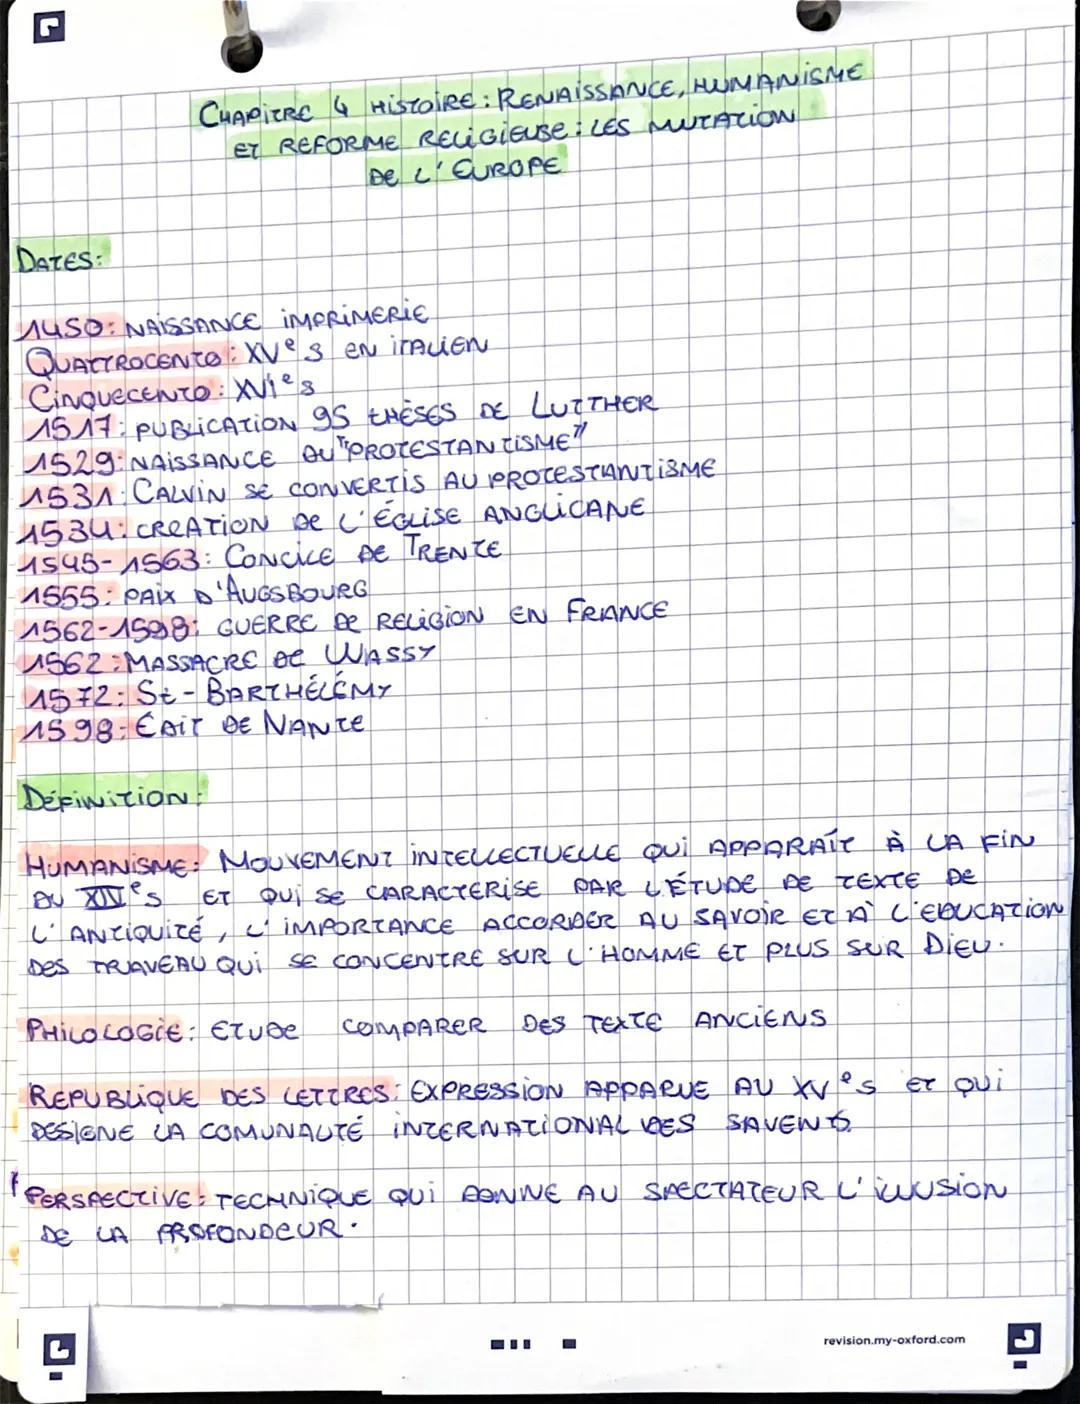 CHAPITRE 4 HISTOIRE : RENAISSANCE, HUMANISME
ET REFORME RELIGIEUSE : LES MUTATION
DE L'EUROPE
DATES :
1450 : NAISSANCE IMPRIMERIE
QUATTROCENTO : XVe S EN ITALIEN
CINQUECENTO : XVIe S
1517 : PUBLICATION 95 THÈSES DE LUTTHER
1529 : NAISSANCE DU "PROTESTANTISME"
1531 : CALVIN SE CONVERTIS AU PROTESTANTISME
1534 : CREATION DE L'ÉGLISE ANGLICANE
1545-1563 : CONCILE DE TRENTE
1555 : PAIX D'AUGSBOURG
1562-1598 : GUERRE DE RELIGION EN FRANCE
1562 : MASSACRE DE WASSY
1572 : St-BARTHÉLÉMY
1598 : ÉDIT DE NANTE
DÉFINITION :
HUMANISME : MOUVEMENT INTELLECTUELLE QUI APPARAÎT À LA FIN
DU XIVe S ET QUI SE CARACTERISE PAR L'ÉTUDE DE TEXTE DE
L'ANTIQUITÉ, L'IMPORTANCE ACCORDER AU SAVOIR ET À L'EDUCATION
DES TRAVEAU QUI SE CONCENTRE SUR L'HOMME ET PLUS SUR DIEU.
PHILOLOGIE : ETUDE COMPARER DES TEXTE ANCIENS
REPUBLIQUE DES LETTRES : EXPRESSION APPARUE AU XVe S ET QUI
DESIGNE LA COMUNAUTÉ INTERNATIONAL DES SAVENTS.
PERSPECTIVE : TECHNIQUE QUI DONNE AU SPECTATEUR L'ILLUSION
DE LA PROFONDEUR.
revision.my-oxford.com